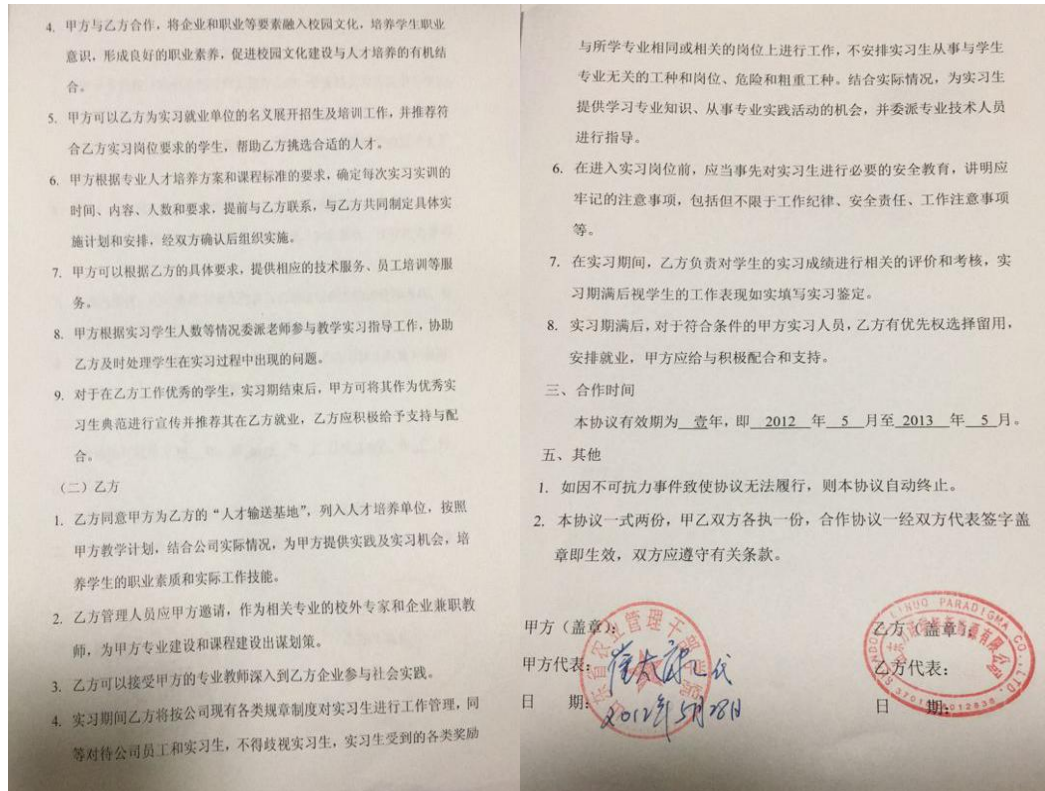 4. 甲方与乙方合作，将企业和职业等要素融入校园文化，培养学生职业
意识，形成良好的职业素养，促进校园文化建设与人才培养的有机结
合。
5. 甲方可以乙方为实习就业单位的名义展开招生及培训工作，并推荐符
合乙方实习岗位要求的学生，帮助乙方挑选合适的人才。
6. 甲方根据专业人才培养方案和课程标准的要求，确定每次实习实训的
时间、内容、人数和要求，提前与乙方联系，与乙方共同制定具体实
施计划和安排，经双方确认后组织实施。
7. 甲方可以根据乙方的具体要求，提供相应的技术服务、员工培训等服
务。
8. 甲方根据实习学生人数等情况委派老师参与教学实习指导工作，协助
乙方及时处理学生在实习过程中出现的问题。
9. 对于在乙方工作优秀的学生，实习期结束后，甲方可将其作为优秀实
习生典范进行宣传并推荐其在乙方就业，乙方应积极给予支持与配
合。
（二）乙方
1. 乙方同意甲方为乙方的“人才输送基地”，列入人才培养单位，按照
甲方教学计划，结合公司实际情况，为甲方提供实践及实习机会，培
养学生的职业素质和实际工作技能。
2. 乙方管理人员应甲方邀请，作为相关专业的校外专家和企业兼职教
师，为甲方专业建设和课程建设出谋划策。
3. 乙方可以接受甲方的专业教师深入到乙方企业参与社会实践。
4. 实习期间乙方将按公司现有各类规章制度对实习生进行工作管理，同
等对待公司员工和实习生，不得歧视实习生，实习生受到的各类奖励
与所学专业相同或相关的岗位上进行工作，不安排实习生从事与学生
专业无关的工种和岗位、危险和粗重工种。结合实际情况，为实习生
提供学习专业知识、从事专业实践活动的机会，并委派专业技术人员
进行指导。
6. 在进入实习岗位前，应当事先对实习生进行必要的安全教育，讲明应
牢记的注意事项，包括但不限于工作纪律、安全责任、工作注意事项
等。
7. 在实习期间，乙方负责对学生的实习成绩进行相关的评价和考核，实
习期满后视学生的工作表现如实填写实习鉴定。
8. 实习期满后，对于符合条件的甲方实习人员，乙方有优先权选择留用，
安排就业，甲方应给与积极配合和支持。
三、合作时间
本协议有效期为 壹年，即 2012 年 5 月至 2013 年 5 月。
五、其他
1. 如因不可抗力事件致使协议无法履行，则本协议自动终止。
2. 本协议一式两份，甲乙双方各执一份，合作协议一经双方代表签字盖
章即生效，双方应遵守有关条款。
甲方（盖章）：
甲方代表：
日 期：2012年5月28日
山东省农业管理干部学院
乙方（盖章）：
乙方代表：
日 期：
SHANDONG LINUO PARADIGMA CO.,LTD.